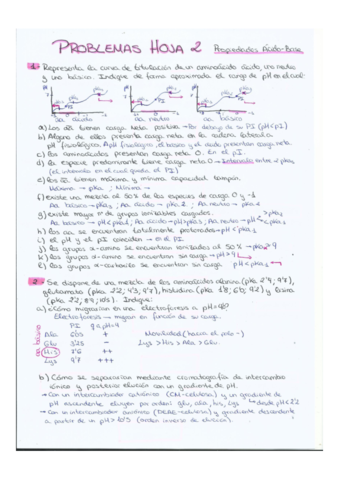 PROBLEMAS HOJA 2 Propiedades Ácido-Base
1. Representa la curva de titulación de un aminoácido ácido, uno neutro
y uno básico. Indique de forma aproximada el rango de pH en el cual:
aa ácido aa neutro aa básico
a) Los aa tienen carga neta positiva → Por debajo de su PI (pH<PI)
b) Alguno de ellos presenta carga neta en la cadena lateral a
pH fisiológico. A pH fisiológico, el básico y el ácido presentan carga neta.
c) Los aminoácidos presentan carga neta 0. En el pI.
d) La especie predominante tiene carga neta 0 → Intervalo entre 2 pKa
(el intervalo en el cual queda el PI)
e) Los aa tienen máxima y mínima capacidad tampón.
Máxima → pKa ; Mínima →
f) existe una mezcla al 50% de las especies de carga 0 y -1
Aa básico → pKa ; Aa ácido → pKa 2 ; Aa neutro → pKa 2
g) existe mayor nº de grupos ionizables cargados.
h) Los aa se encuentran totalmente protonados →
i) el pH y el PI coinciden → en el PI.
j) Los grupos α-amino se encuentran ionizados al 50% →
k) Los grupos α-amino se encuentran sin carga →
l) Los grupos α-carboxilo se encuentran sin carga
2. Se dispone de una mezcla de los aminoácidos alanina (pKa 2'4; 9'7),
glutamato (pKa 2'2; 4'3; 9'7), histidina (pKa 1'8; 6'0; 9'2) y lisina
(pKa 2'2; 8'9; 10'5). Indique:
a) ¿Cómo migrarán en una electroforesis a pH=4?
Electroforesis → migran en función de su carga.
PI q a pH=4
Ala +
Glu 3'25 − Movilidad (hacia el polo −)
His 7'6 ++ Lys > His > Ala > Glu.
Lys 9'7 ++
aa básico
b) Cómo se separarían mediante cromatografía de intercambio
iónico y posterior elución con un gradiente de pH.
→ Con un intercambiador catiónico (CM-celulosa) y un gradiente de
pH ascendente eluyen por orden: Glu, Ala, His, Lys
→ Con un intercambiador aniónico (DEAE-celulosa) y gradiente descendente
a partir de un pH > 10'5 (orden inverso de elución).